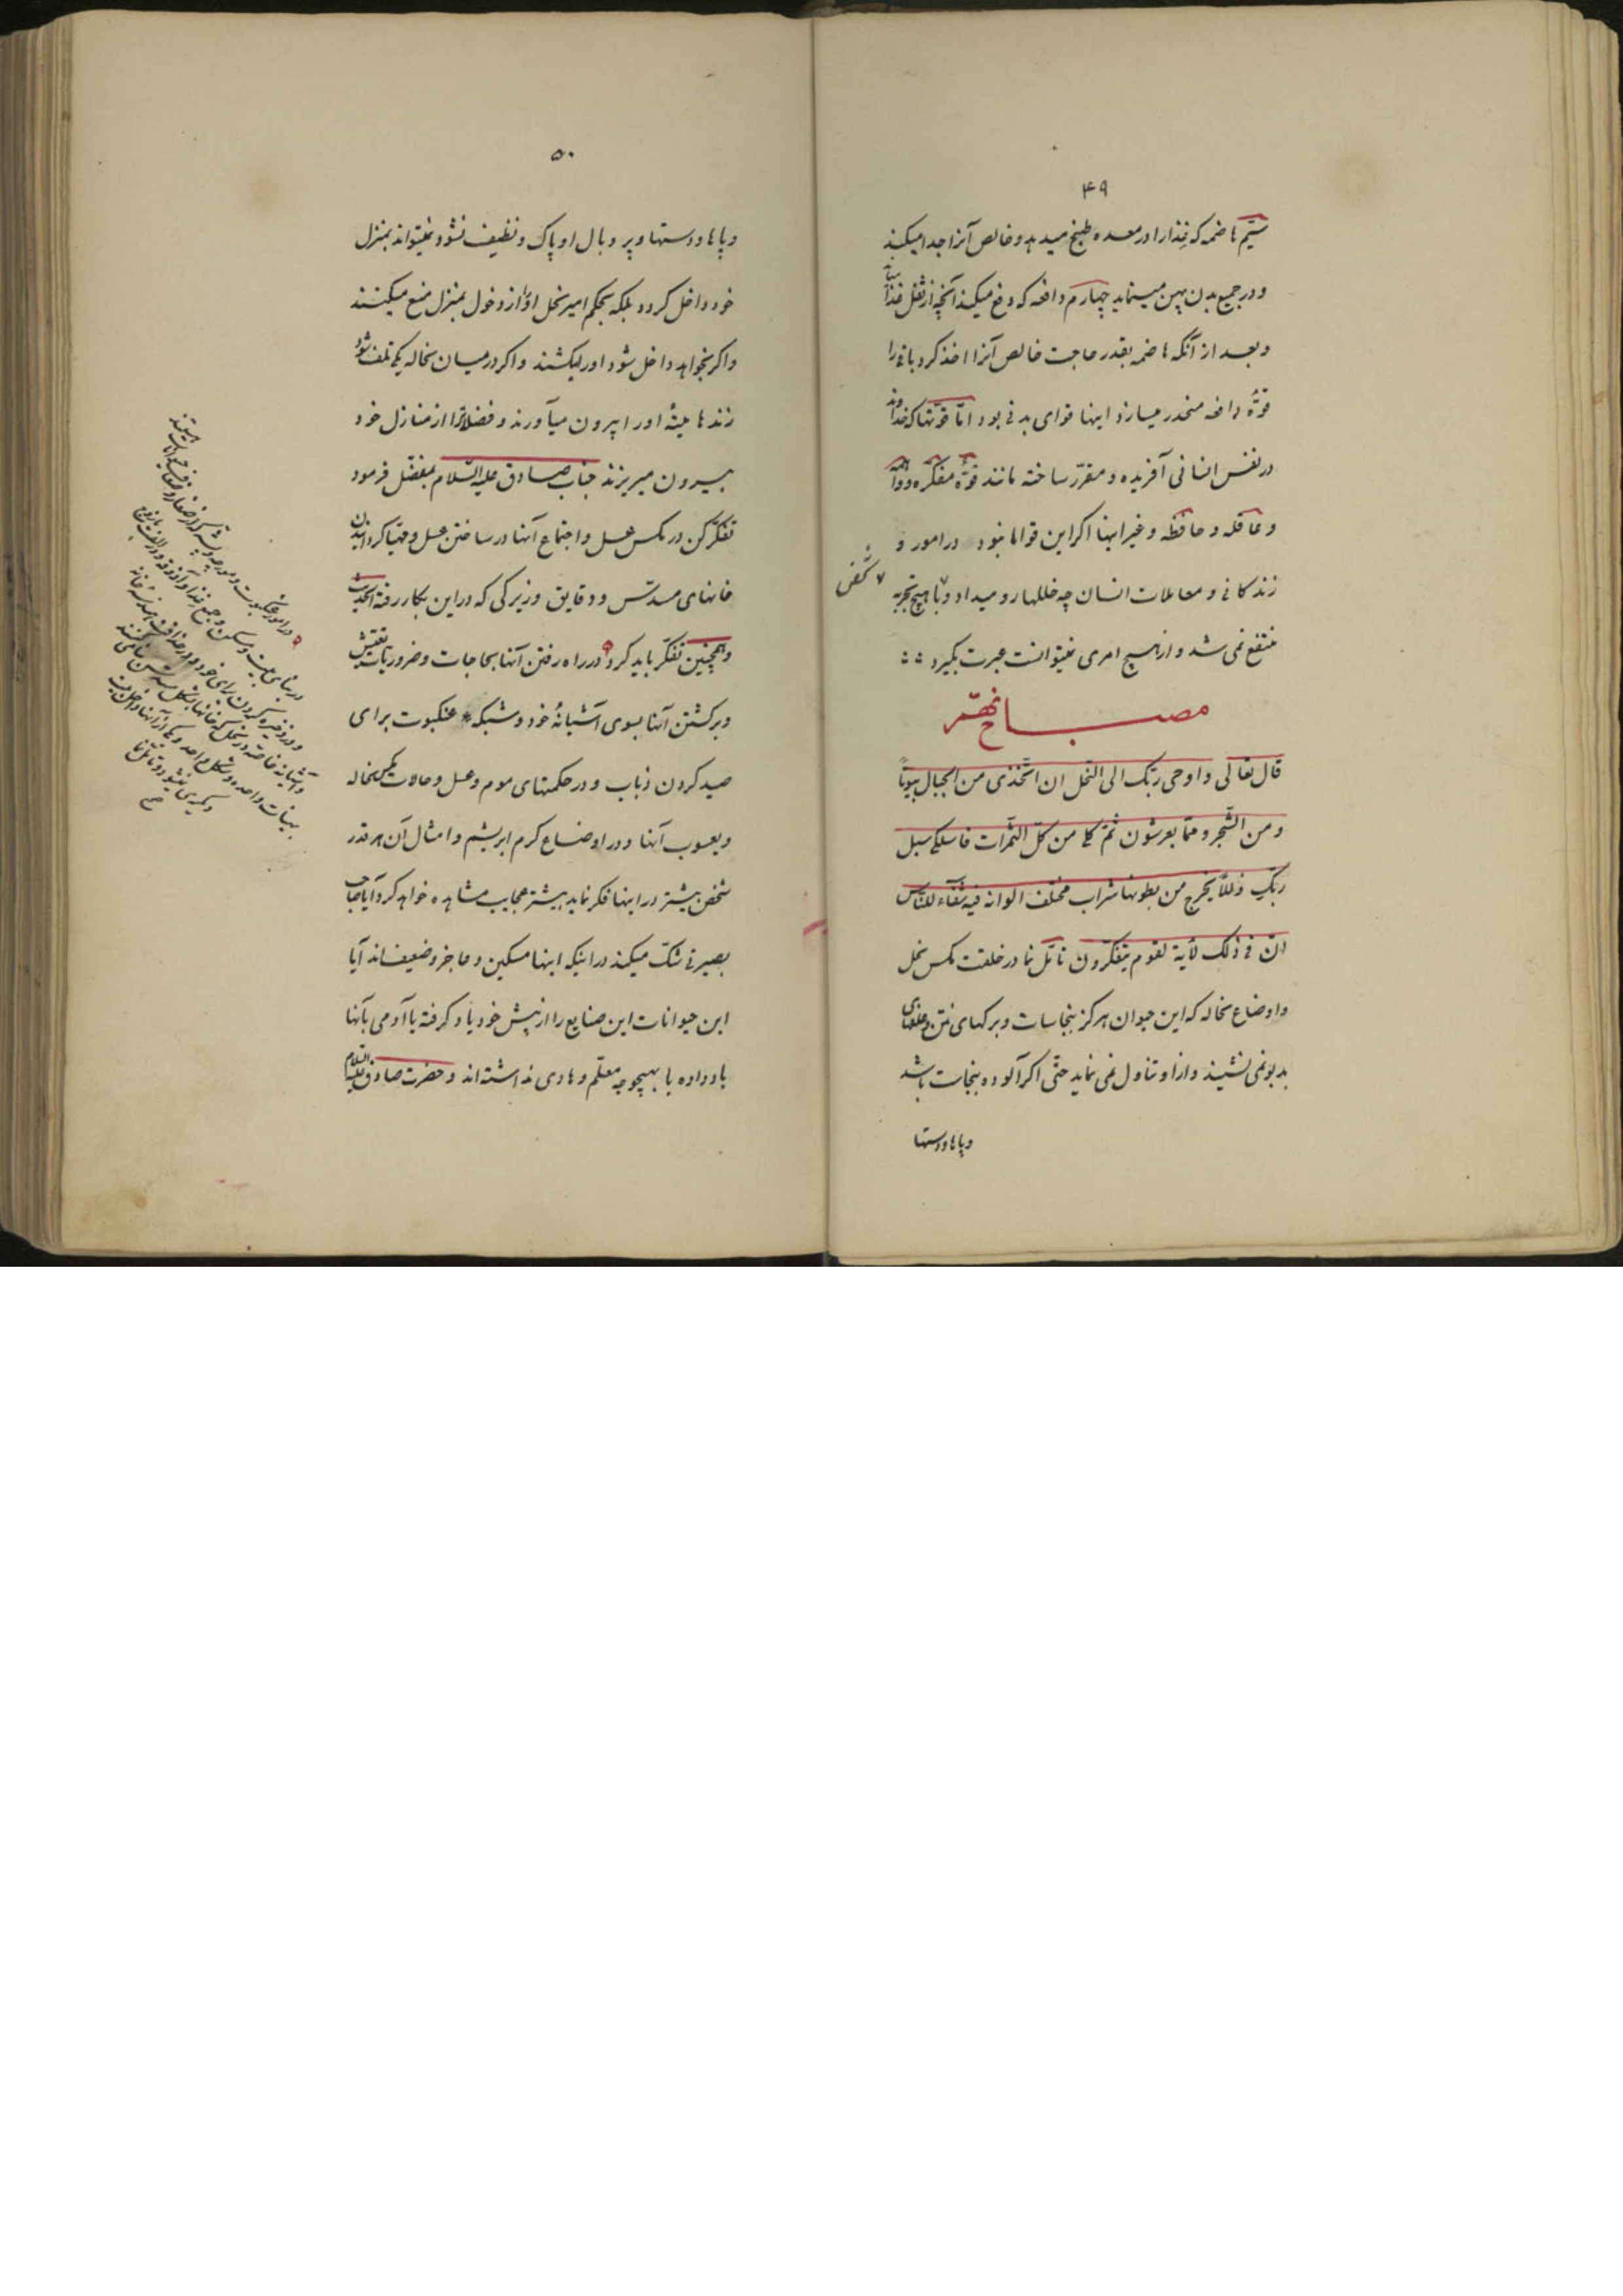 ۴۹
سیّم هاضمه که غذا را در معده طبخ میدهد و خالص آنرا جدا میکند
و در جمیع بدن پهن مینماید چهارم دافعه که دفع میکند آنچه از ثفل غذا
و بعد از آنکه هاضمه بقدر حاجت خالص آنرا اخذ کرد باقی را
قوّهٔ دافعه منحدر میسازد اینها قوای بدنی بود امّا قوّتها که خداوند
در نفس انسانی آفریده و مقرّر ساخته مانند قوّهٔ مفکّره و واهمه
و عاقله و حافظه و غیر اینها اکر این قواها نبود در امور و
زندکانی و معاملات انسان چه خللها رو میداد و با هیچ تجربه
شخص
منتفع نمی شد و از هیچ امری نمیتوانست عبرت بکیرد
مصباح نهم
قال تعالی و اوحی ربّک الی النّحل ان اتّخذی من الجبال بیوتاً
و من الشّجر و ممّا یعرشون ثمّ کلی من کلّ الثّمرات فاسلکی سبل
ربّکِ ذللاً یخرج من بطونها شراب مختلف الوانه فیه شفآء للنّاس
انّ فی ذلک لأیة لقوم یتفکّرون تأمّل نما در خلقت مکس نحل
و اوضاع نحاله که این حیوان هرکز بنجاسات و برکهای نتن و علفهای
بدبو نمی نشیند و از او تناول نمی نماید حتّی اکر آلوده بنجاست باشد
و پاها و دستها
۵۰
و پاها و دستها و پر و بال او پاک و نظیف نشود نمیتواند بمنزل
خود داخل کردد بلکه بحکم امیر نحل او را از دخول بمنزل منع میکنند
و اکر بخواهد داخل شود او را میکشند و اکر در میان نحاله یکی تلف شود
زندها میّتهٔ او را بیرون میآورند و فضلاترا از منازل خود
بیرون میریزند جناب صادق علیه السّلام بمفضّل فرمود
تفکّر کن در مکس عسل و اجتماع آنها در ساختن عسل و مهیّا کردانیدن
خانهای مسدّس و دقایق و زیرکی که در این بکار رفته الحدیث
و همچنین تفکّر باید کرد در راه رفتن آنها بحاجات و ضروریات
و برکشتن آنها بسوی آشیانهٔ خود و شبکه عنکبوت برای
صید کردن ذباب و در حکمتهای موم و عسل و حالات مکس نحاله
و یعسوب آنها و در اوضاع کرم ابریشم و امثال آن هر قدر
شخص بیشتر در اینها فکر نماید بیشتر عجایب مشاهده خواهد کرد آیا صاحب
بصیرتی شکّ میکند در اینکه اینها مسکین و عاجز و ضعیف اند آیا
این حیوانات این صنایع را از پیش خود یاد کرفته یا آدمی بآنها
یاد داده یا بهیچوجه معلّم و هادی نداشته اند و حضرت صادق علیه السلام